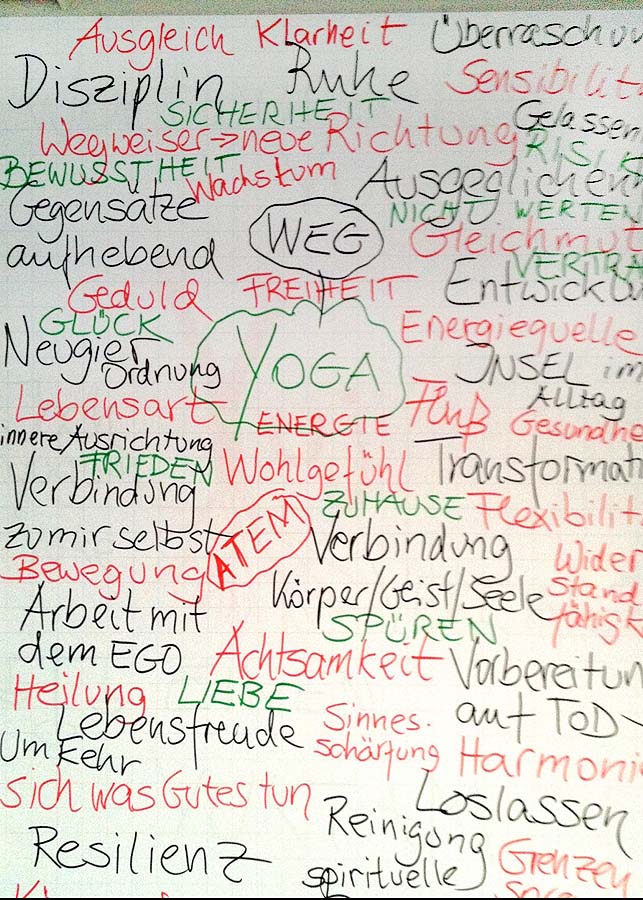 Ausgleich Klarheit Überraschu
Disziplin Ruhe Sensibilit
SICHERHEIT Gelassen
Wegweiser→neue Richtung
BEWUSSTHEIT Wachstum
Ausgeglichen
Gegensätze
aufhebend
WEG
NICHT WERTEN
Gleichmut
VERTRA
Geduld FREIHEIT Entwicklu
GLÜCK
Neugier
Ordnung
YOGA
Energiequelle
INSEL im
Alltag
Lebensart
ENERGIE
Fluß
Gesundhe
innere Ausrichtung
FRIEDEN
Wohlgefühl
Transformat
Verbindung
zu mir selbst
ATEM
ZUHAUSE
Flexibilit
Verbindung
Körper/Geist/Seele
Bewegung
Wider
stand
fähigk
Arbeit mit
dem EGO
SPÜREN
Achtsamkeit
Vorbereitun
auf TOD
Heilung LIEBE
Lebensfreude
Sinnes.
schärfung
Harmoni
Umkehr
Sich was Gutes tun
Loslassen
Resilienz
Reinigung
spirituelle
Grenzen